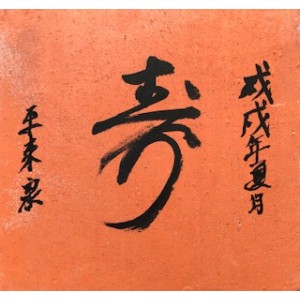 戊戌年夏月
寿
平來泉